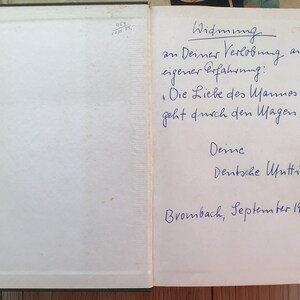 Widmung
an Deiner Verlobung au
eigener Erfahrung:
"Die Liebe des Mannes
geht durch den Magen
Deine
Deutsche Mutti
Brombach, September 19